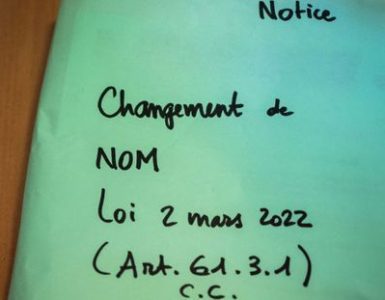 Notice
Changement de
NOM
Loi 2 mars 2022
(Art. 61.3.1)
C.C.